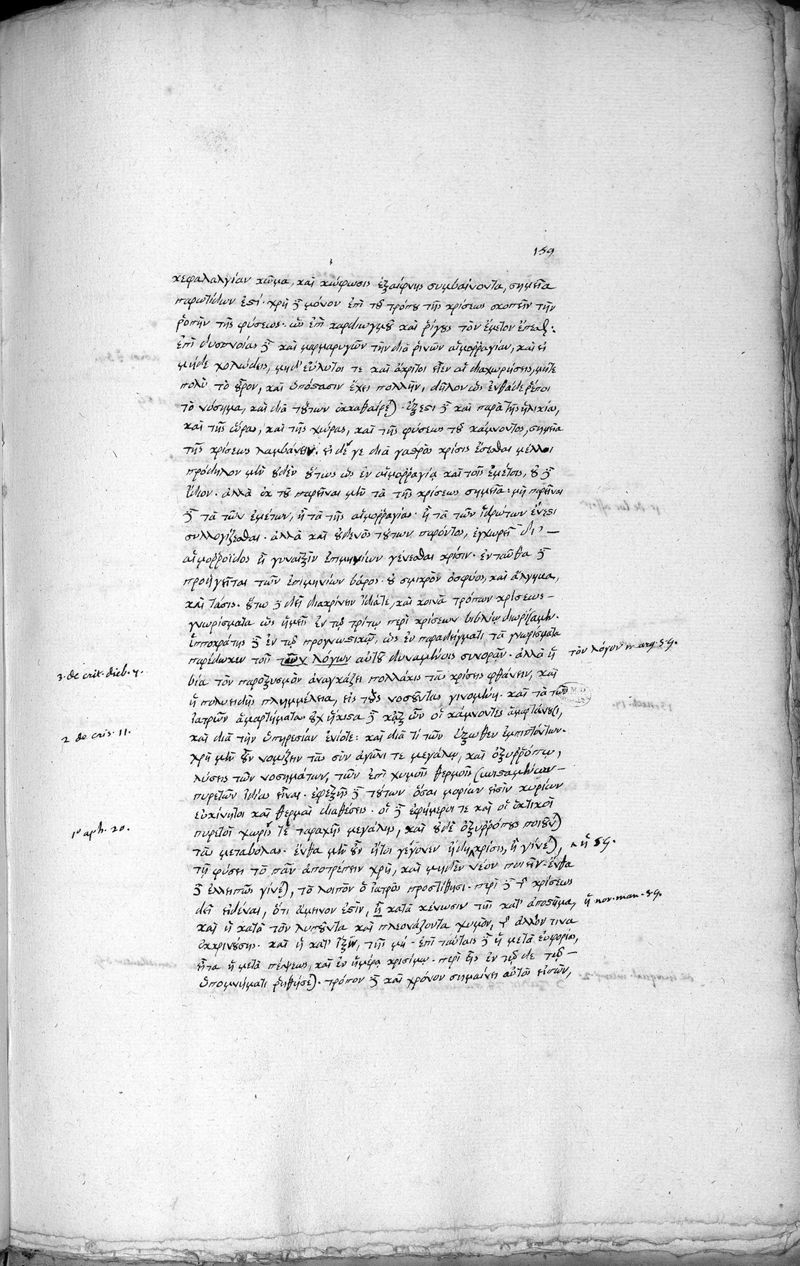 159
κεφαλαλγίαν κῶμα, καὶ κώφωσις ἐξαίφνης συμβαίνοντα, σημεῖα
παρωτίδων ἐστί· χρὴ δὲ μόνον ἐπὶ τοῦ τρόπου τῆς κρίσεως σκοπεῖν τὴν
ῥοπὴν τῆς φύσεως· ὡς ἐπὶ καρδιωγμοῦ καὶ ῥίγους τὸν ἔμετον
ἐπὶ δυσπνοίας δὲ καὶ μαρμαρυγῶν τὴν διὰ ῥινῶν αἱμορραγίαν, καὶ εἰ
μήδε χολώδεις, μηδ' εὔλυτοί τε καὶ ἄκριτοι εἶεν αἱ διαχωρήσεις, μήτε
πολὺ τὸ οὖρον, καὶ ὑπόστασιν ἔχει πολλήν, δῆλον ὡς ἐνθάδε ῥέπει
τὸ νόσημα, καὶ διὰ τούτων ἐκκαθαίρεται· ἔξεστι δὲ καὶ παρὰ τῆς ἡλικίας,
καὶ τῆς ὥρας, καὶ τῆς χώρας, καὶ τῆς φύσεως τοῦ κάμνοντος, σημεῖα
τῆς κρίσεως λαμβάνειν. εἰ δέ γε διὰ γαστρὸς κρίσις ἔσεσθαι μέλλοι
πρόδηλον μὲν οὐδὲν οὕτως ὡς ἐν αἱμορραγίᾳ καὶ τοῖς ἐμέτοις, οὐ δὲ
ἴδιον· ἀλλὰ ἐκ τοῦ παρεῖναι μὲν τὰ τῆς κρίσεως σημεῖα· μὴ παρεῖναι
δὲ τὰ τῶν ἐμέτων, ἢ τὰ τῆς αἱμορραγίας· ἢ τὰ τῶν ἱδρώτων ἔνεστι
συλλογίζεσθαι· ἀλλὰ καὶ οὐδενὸς τούτων παρόντος, ἐγχωρεῖ δι' —
αἱμορροΐδος ἢ γυναιξὶν ἐπιμηνίων γενέσθαι κρίσιν· ἐνταῦθα δὲ
προηγεῖται τῶν ἐπιμηνίων βάρος· οὐ σμικρὸν ὀσφύος, καὶ ἄλγημα,
καὶ τάσις. οὕτω δὲ δεῖ διακρίνειν ἴδιά τε, καὶ κοινὰ τρόπων κρίσεως —
γνωρίσματα ὡς ἡμεῖς ἐν τῷ τρίτῳ περὶ κρίσεων βιβλίῳ διωρίσαμεν.
ἱπποκράτης δὲ ἐν τῷ προγνωστικῷ, ὡς ἐν παραδείγματι τὰ γνωρίσματα
παρέδωκεν τοῖς τῶν λόγων αὐτοῦ δυναμένοις συνορᾶν· ἀλλὰ ἡ τὸν λόγον in arg. 59.
3. de crit. dieb. 7. βία τὸν παροξυσμὸν ἀναγκάζει πολλάκις τὰς κρίσεις φθάνειν, καὶ
ἡ πολυειδὴς πλημμέλεια, εἰς τοὺς νοσοῦντας γινομένη· καὶ τὰ τῶν
ἰατρῶν ἁμαρτήματα οὐχ ἥκιστα δὲ κἀξ ὧν οἱ κάμνοντες ἁμαρτάνουσι,
2 de cris. 11. καὶ διὰ τὴν ὑπηρεσίαν ἐνίοτε· καὶ διά τι τῶν ἔξωθεν ἐμπιπτόντων.
χρὴ μὲν οὖν νομίζειν τὰς σὺν ἀγῶνί τε μεγάλῳ, καὶ ὀξυρρόπῳ,
λύσεις τῶν νοσημάτων, τῶν ἐπὶ χυμοῖς θερμοῖς συνισταμένων —
πυρετῶν ἰδίας εἶναι. ἐφεξῆς δὲ τούτων ὅσαι μορίων εἰσὶν κυρίων
εὐκίνητοι καὶ θερμαὶ διαθέσεις· οἱ δὲ ἐφήμεροί τε καὶ οἱ ἑκτικοὶ
πυρετοὶ χωρίς τε ταραχῆς μεγάλης, καὶ οὐδὲ ὀξυρρόπους ποιοῦνται
1º aph. 20. τὰς μεταβολάς. ἔνθα μὲν οὖν ἤτοι γέγονεν ἤδη κρίσις, ἢ γίνεται, ἢ 59.
τῇ φύσει τὸ πᾶν ἀποτρέπειν χρή, καὶ μηδὲν νέον ποιεῖν· ἔνθα
δὲ ἐλλειπῶς γίνεται, τὸ λοιπὸν ὁ ἰατρὸς προστίθησι· περὶ δὲ τῆς κρίσεως
δεῖ εἰδέναι, ὅτι ἄμεινον ἐστίν, ἢ κατὰ κένωσιν τῆς κατ' ἀπόστημα, ἢ nor. man. 59.
καὶ ἡ κατὰ τὸν λυποῦντα καὶ πλεονάζοντα χυμόν, τῆς ἄλλον τινα
ἐκκρινούσης· καὶ ἡ κατ' ἴξιν, τῆς μή· ἐπὶ ταύταις δὲ ἡ μετὰ εὐφορίας,
εἶτα ἡ μετὰ πέψεως, καὶ ἐν ἡμέρᾳ κρισίμῳ· περὶ ἧς ἐν τῷδε τῷ —
ὑπομνήματι ῥηθήσεται. τρόπον δὲ καὶ χρόνον σημαίνει αὐτὸς εἰπών,